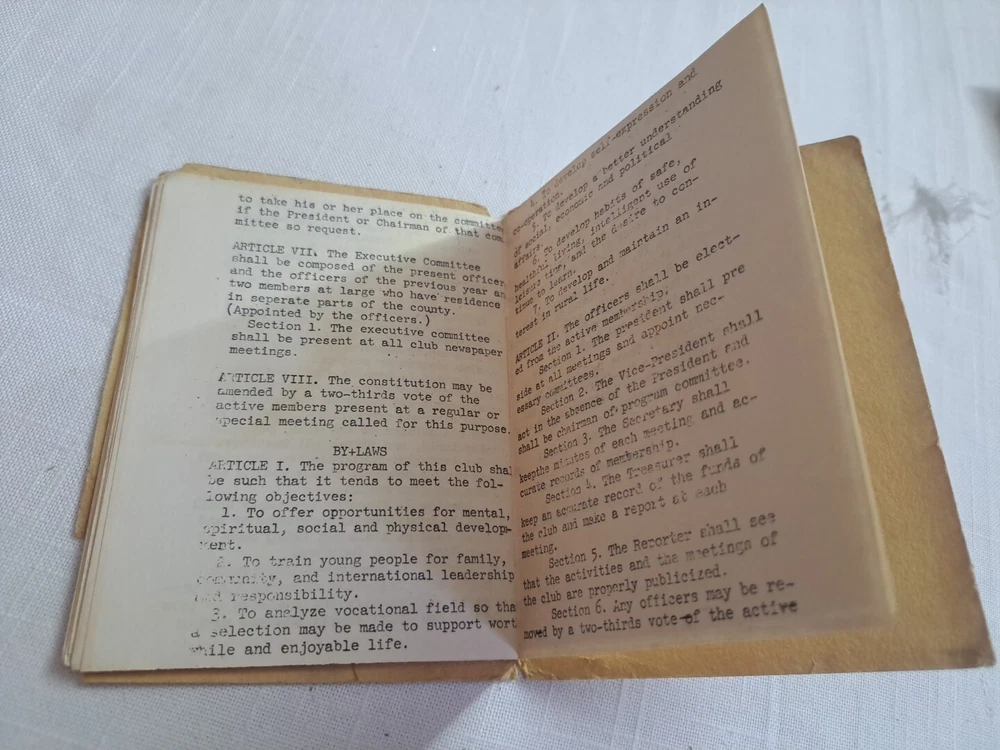 to take his or her place on the committee
if the President or Chairman of that com
mittee so request.
ARTICLE VII. The Executive Committee
shall be composed of the present officer
and the officers of the previous year an
two members at large who have residence
in seperate parts of the county.
(Appointed by the officers.)
Section 1. The executive committee
shall be present at all club newspaper
meetings.
ARTICLE VIII. The constitution may be
amended by a two-thirds vote of the
active members present at a regular or
special meeting called for this purpose.
BY+LAWS
ARTICLE I. The program of this club shal
be such that it tends to meet the fol-
lowing objectives:
1. To offer opportunities for mental,
spiritual, social and physical develop-
ment.
2. To train young people for family,
community, and international leadership
and responsibility.
3. To analyze vocational field so tha
a selection may be made to support wort
while and enjoyable life.
4. To develop self-expression and
co-operation.
5. To develop a better understanding
of social, economic and political
affairs.
6. To develop habits of safe,
healthful living, intelligent use of
leisure time, and the desire to con-
tinue to learn.
7. To develop and maintain an in-
terest in rural life.
ARTICLE II. The officers shall be elect-
ed from the active membership.
Section 1. The president shall pre
side at all meetings and appoint nec-
essary committees.
Section 2. The Vice-President shall
act in the absence of the President and
shall be chairman of program committee.
Section 3. The Secretary shall
keepthe minutes of each meeting and ac-
curate records of membership.
Section 4. The Treasurer shall
keep an accurate record of the funds of
the club and make a report at each
meeting.
Section 5. The Reporter shall see
that the activities and the meetings of
the club are properly publicized.
Section 6. Any officers may be re-
moved by a two-thirds vote of the active